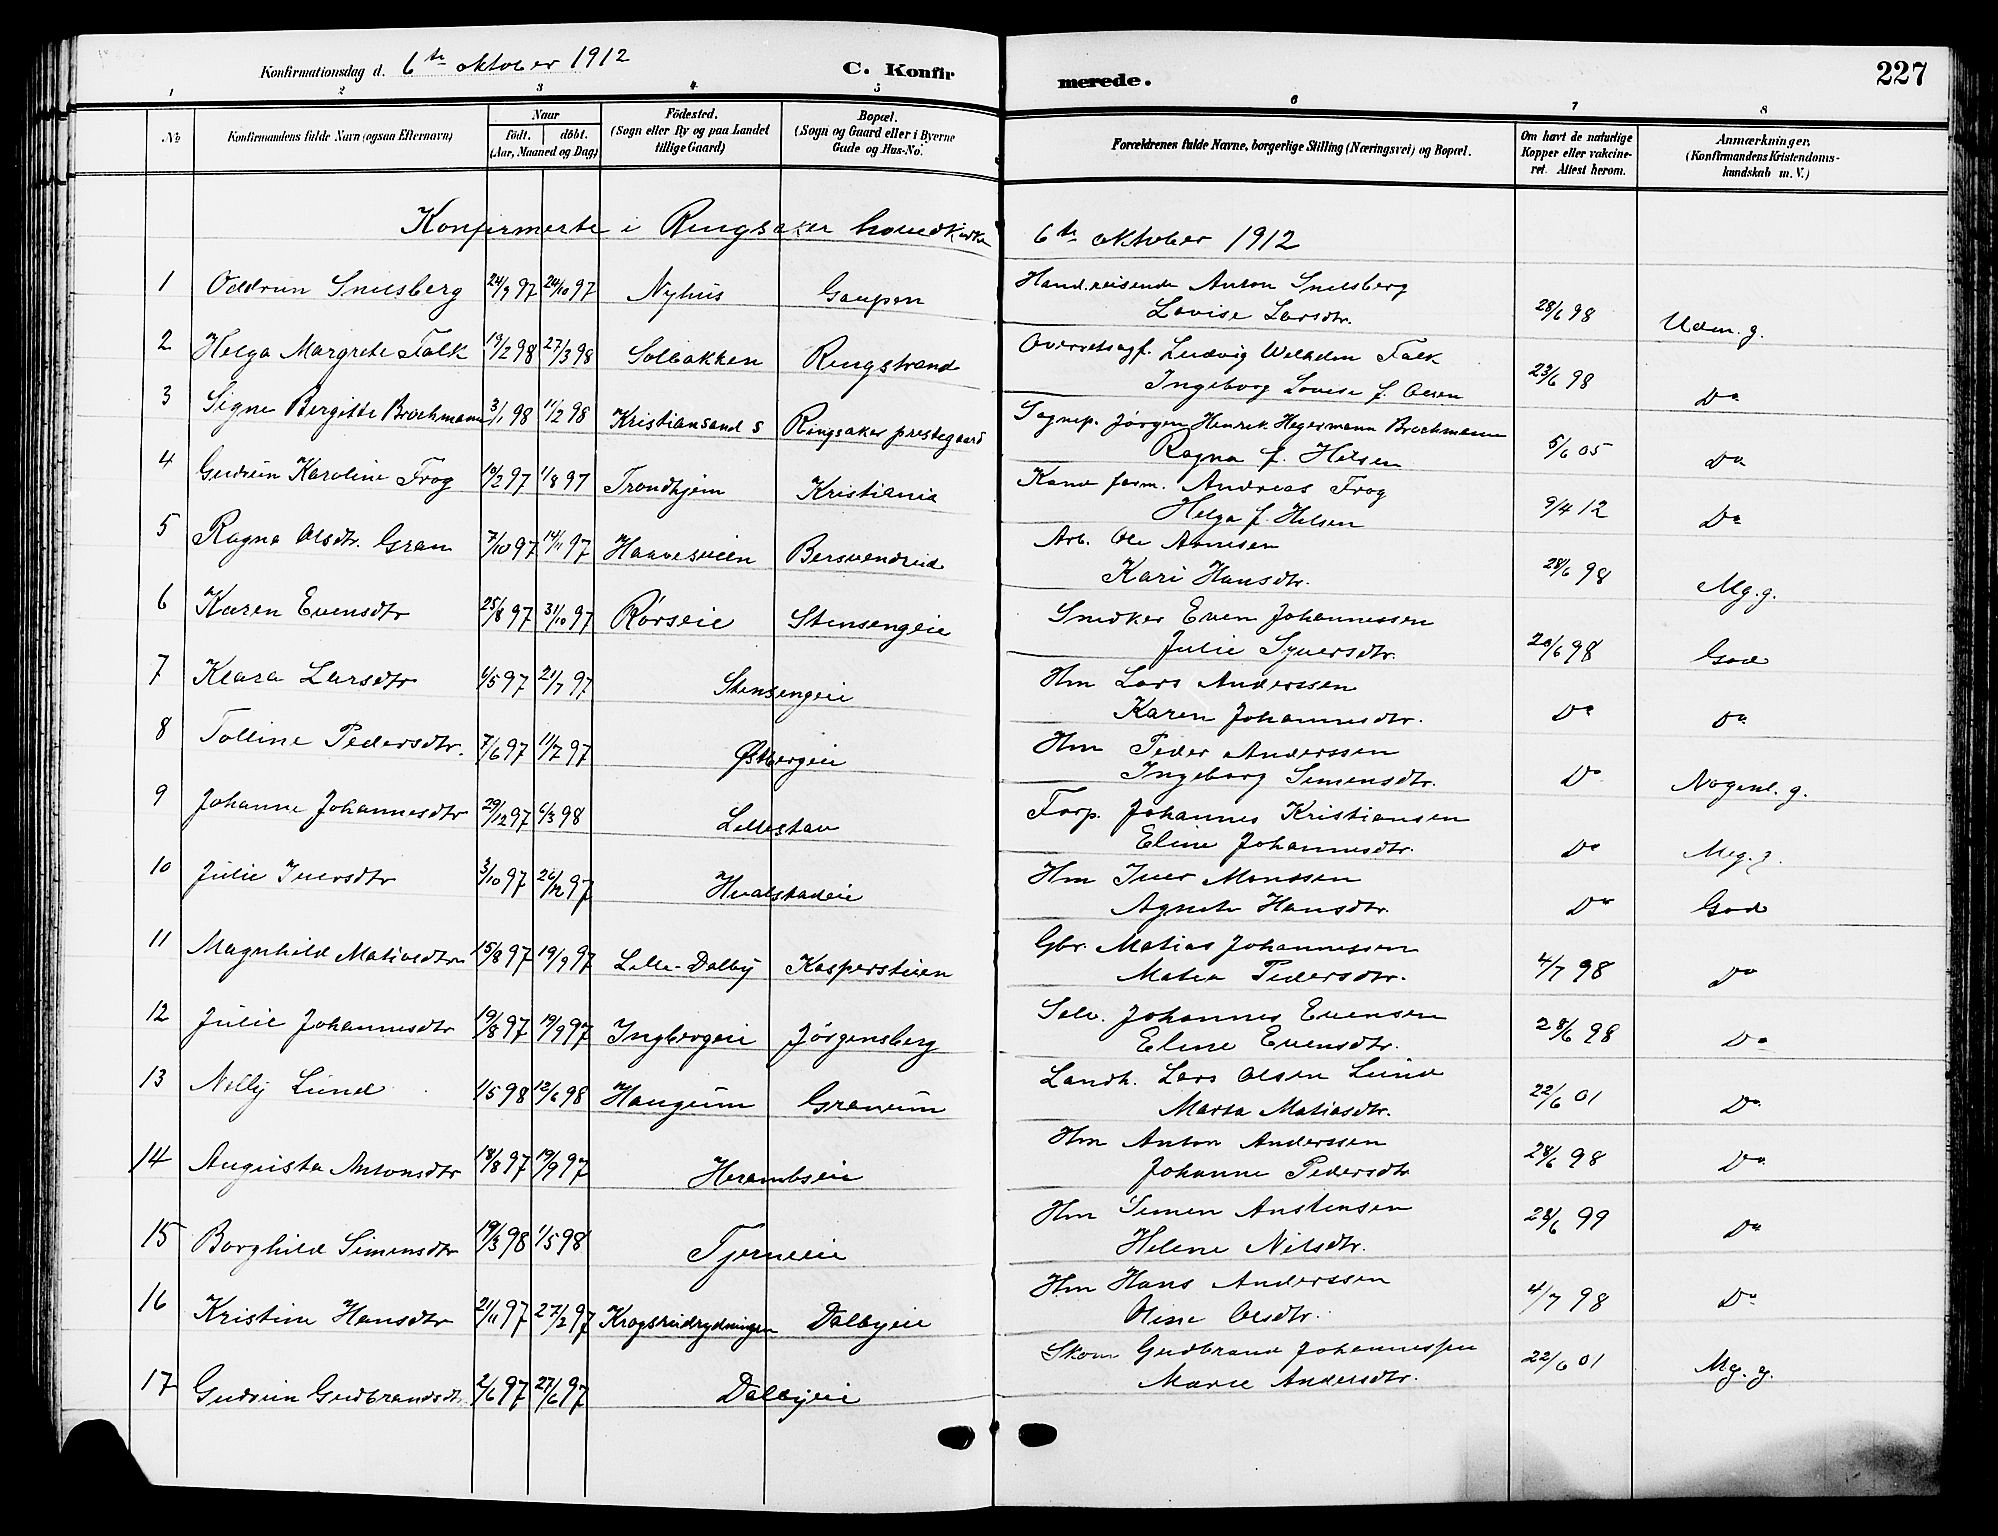 Konfirmationsdag d. 6te oktober 1912 C. Konfirmerede. 227
1 2 3 4 5 6 7 8
No Konfirmandens fulde Navn (ogsaa Efternavn) Naar födt. döbt. (Aar, Maaned og Dag) Födested. (Sogn eller By og paa Landet tillige Gaard) Bopæl. (Sogn og Gaard eller i Byerne Gade og Hus-No.) Forældrenes fulde Navne, borgerlige Stilling (Næringsvei) og Bopæl. Om havt de naturlige Kopper eller vakcineret. Attest herom. Anmærkninger. (Konfirmandens Kristendomskundskab m. V.)
Konfirmerte i Ringsaker hovedkirke 6te oktober 1912
1 Oddrun Snilsberg 24/9 97 24/10 97 Nyhus Gaupen Hand.reisende Anton Snilsberg
Lovise Larsdtr. 28/6 98 Udm. g.
2 Helga Margrete Falk 19/2 98 27/3 98 Solbakken Ringstrand Overretssagf. Ludvig Wilhelm Falk
Ingeborg Lovise f. Olsen 23/6 98 Do
3 Signe Bergitte Brochmann 3/1 98 11/2 98 Kristiansand S Ringsaker prestegaard Sognep. Jørgen Henrik Hegermann Brochmann
Ragna f. Hilsen 5/6 05 Do
4 Gudrun Karoline Frog 10/2 97 1/8 97 Trondhjem Kristiania Kand farm. Andreas Frog
Helga f. Hilsen 9/4 12 Do
5 Ragna Olsdtr. Gran 7/10 97 14/11 97 Haavesveen Bersvendrud Arb. Ole Arnesen
Kari Hansdtr. 28/6 98 Mg. g.
6 Karen Evensdtr 25/8 97 31/10 97 Rörseie Stensengeie Snedker Even Johannessen
Julie Syversdtr. 20/6 98 God
7 Klara Larsdtr 6/5 97 21/7 97 Stensengeie Hm Lars Anderssen
Karen Johannesdtr. Do Do
8 Tolline Pedersdtr. 7/6 97 11/7 97 Østbergeie Hm Peder Anderssen
Ingeborg Simensdtr. Do Nogenl. g.
9 Johanne Johannesdtr 29/12 97 6/3 98 Lillestav Forp. Johannes Kristiansen
Eline Johannesdtr. Do Meg. g.
10 Julie Iversdtr 3/10 97 26/12 97 Hvalstadeie Hm Iver Monssen
Agnete Hansdtr. Do God
11 Magnhild Matiasdtr 15/8 97 19/9 97 Lille-Dalby Kasperstuen Gbr. Matias Johannessen
Matea Pedersdtr. 4/7 98 Do
12 Julie Johannesdtr 19/8 97 19/9 97 Ingbergeie Jörgensberg Selv. Johannes Evensen
Eline Evensdtr. 28/6 98 Do
13 Nelly Lund 1/5 98 12/6 98 Haugeum Granum Landh. Lars Olsen Lund
Marta Matiasdtr. 22/6 01 Do
14 Augusta Antonsdtr 18/8 97 19/9 97 Herambseie Hm Anton Anderssen
Johanne Pedersdtr 28/6 98 Do
15 Borghild Simensdtr 19/3 98 1/5 98 Tjerneeie Hm Simen Anstensen
Helene Nilsdtr. 28/6 99 Do
16 Kristine Hansdtr 21/11 97 27/12 97 Krogsrudrydningen Dalbyeie Hm Hans Anderssen
Oline Olsdtr. 4/7 98 Do
17 Gudrun Gudbrandsdt. 2/6 97 27/6 97 Dalbyeie Skom Gudbrand Johannessen
Marie Andersdtr. 22/6 01 Mg. g.